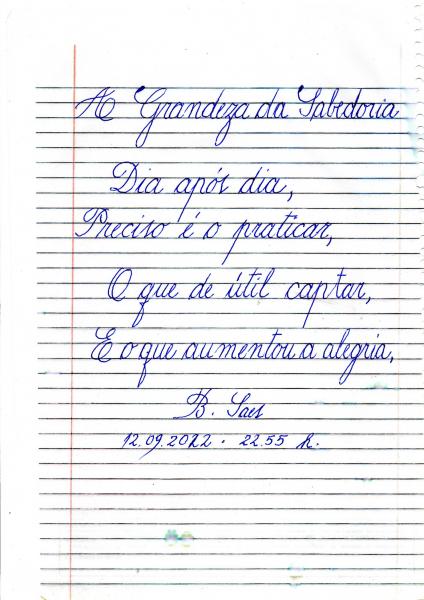 A Grandeza da Sabedoria
Dia após dia,
Preciso é o praticar,
O que de útil captar,
E o que aumentou a alegria,
B. Saes
12.09.2022 . 22.55 h.